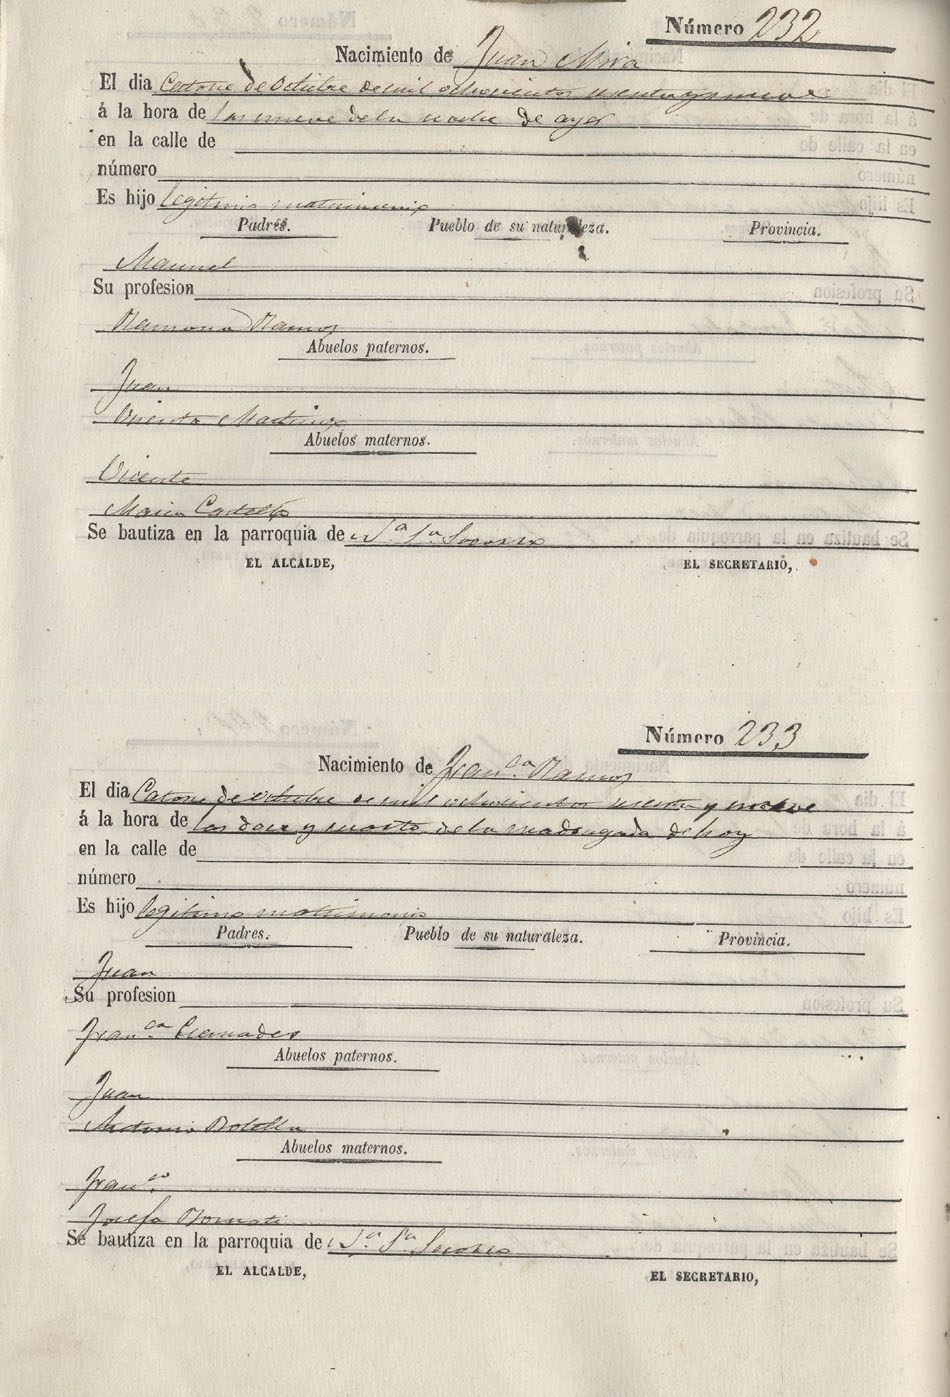 Número 232
Nacimiento de Juan Mira
El dia Catorse de Octubre de mil ochosientos sesenta y nueve
á la hora de las nueve de la noche de ayer
en la calle de
número
Es hijo legitimo matrimonio
Padres. Pueblo de su naturaleza. Provincia.
Manuel
Su profesion
Ramona Ramos
Abuelos paternos.
Juan
Vicenta Martinez
Abuelos maternos.
Vicente
Maria Castelló
Se bautiza en la parroquia de N.ª S.ª Socorro
EL ALCALDE, EL SECRETARIO,
Número 233
Nacimiento de Fran.ca Ramos
El dia Catorse de octubre de mil ochosientos sesenta y nueve
á la hora de las dose y cuarto de la madrugada de hoy
en la calle de
número
Es hijo legitimo matrimonio
Padres. Pueblo de su naturaleza. Provincia.
Juan
Su profesion
Fran.ca Cremades
Abuelos paternos.
Juan
Antonia Botella
Abuelos maternos.
Fran.co
Josefa
Se bautiza en la parroquia de N.ª S.ª Socorro
EL ALCALDE, EL SECRETARIO,